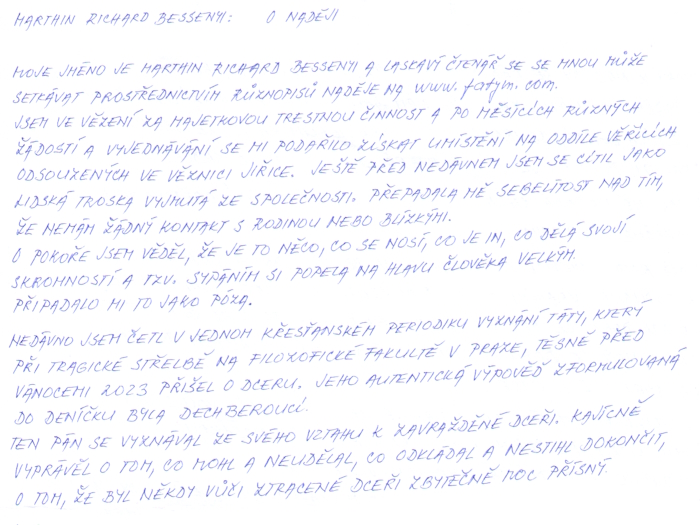 MARTHIN RICHARD BESSENYI: O NADĚJI
MOJE JMÉNO JE MARTHIN RICHARD BESSENYI A LASKAVÝ ČTENÁŘ SE SE MNOU MŮŽE
SETKÁVAT PROSTŘEDNICTVÍM RŮZNOPISŮ NADĚJE NA www.fatym.com.
JSEM VE VĚZENÍ ZA MAJETKOVOU TRESTNOU ČINNOST A PO MĚSÍCÍCH RŮZNÝCH
ŽÁDOSTÍ A VYJEDNÁVÁNÍ SE MI PODAŘILO ZÍSKAT UMÍSTĚNÍ NA ODDÍLE VĚŘÍCÍCH
ODSOUZENÝCH VE VĚZNICI JIŘICE. JEŠTĚ PŘED NEDÁVNEM JSEM SE CÍTIL JAKO
LIDSKÁ TROSKA VYJMUTÁ ZE SPOLEČNOSTI. PŘEPADALA MĚ SEBELÍTOST NAD TÍM,
ŽE NEMÁM ŽÁDNÝ KONTAKT S RODINOU NEBO BLÍZKÝMI.
O POKOŘE JSEM VĚDĚL, ŽE JE TO NĚCO, CO SE NOSÍ, CO JE IN, CO DĚLÁ SVOJÍ
SKROMNOSTÍ A TZV. SYPÁNÍM SI POPELA NA HLAVU ČLOVĚKA VELKÝM.
PŘIPADALO MI TO JAKO PÓZA.
NEDÁVNO JSEM ČETL V JEDNOM KŘESŤANSKÉM PERIODIKU VYZNÁNÍ TÁTY, KTERÝ
PŘI TRAGICKÉ STŘELBĚ NA FILOZOFICKÉ FAKULTĚ V PRAZE, TĚSNĚ PŘED
VÁNOCEMI 2023 PŘIŠEL O DCERU. JEHO AUTENTICKÁ VÝPOVĚĎ ZFORMULOVANÁ
DO DENÍČKU BYLA DECHBEROUCÍ.
TEN PÁN SE VYZNÁVAL ZE SVÉHO VZTAHU K ZAVRAŽDĚNÉ DCEŘI. KAJÍCNĚ
VYPRÁVĚL O TOM, CO MOHL A NEUDĚLAL, CO ODKLÁDAL A NESTIHL DOKONČIT,
O TOM, ŽE BYL NĚKDY VŮČI ZTRACENÉ DCEŘI ZBYTEČNĚ MOC PŘÍSNÝ.